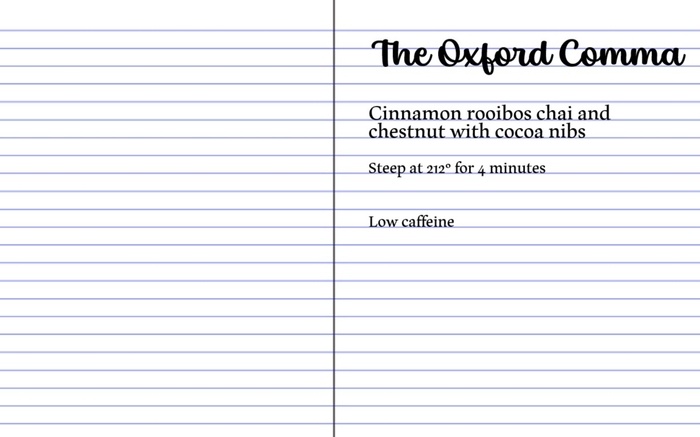 The Oxford Comma
Cinnamon rooibos chai and
chestnut with cocoa nibs
Steep at 212° for 4 minutes
Low caffeine